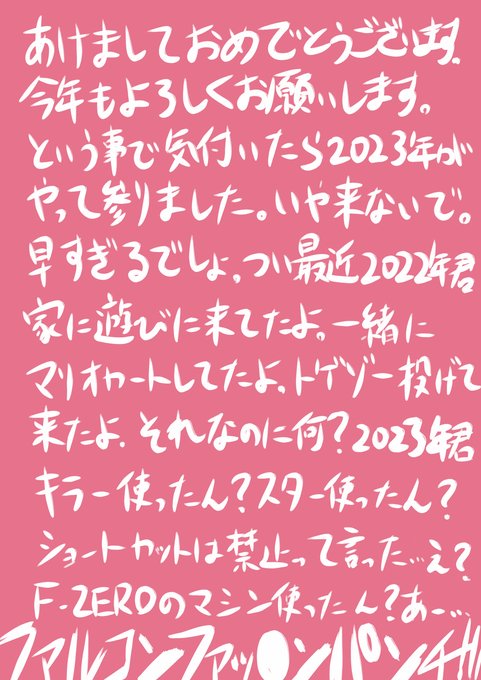 あけましておめでとうございます、
今年もよろしくお願いします。
という事で気付いたら2023年が
やって参りました。いや来ないで。
早すぎるでしょ、つい最近2022年君
家に遊びに来てたよ。一緒に
マリオカートしてたよ、トゲゾー投げて
来たよ。それなのに何？2023年君
キラー使ったん？スター使ったん？
ショートカットは禁止って言った…え？
F-ZEROのマシン使ったん？あー…
ファルコンファッ●ンパンチ!!!